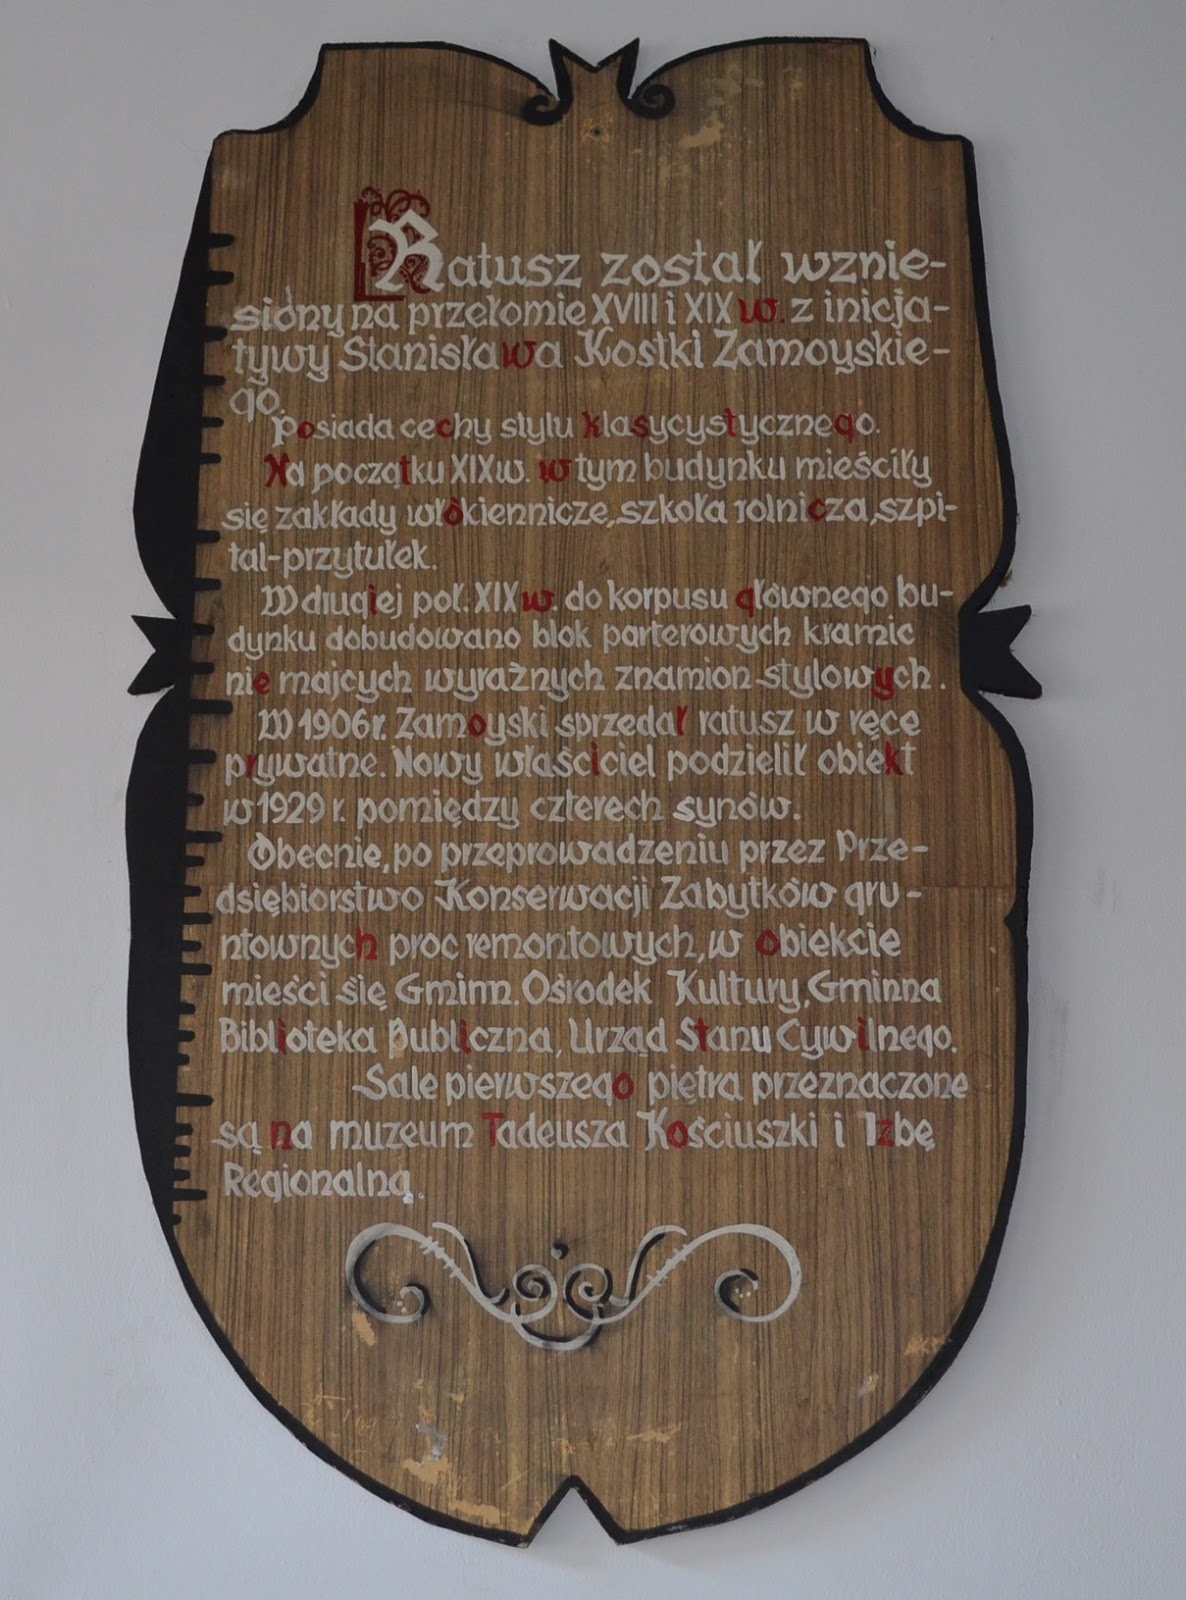 Ratusz został wznie-
siony na przełomie XVIII i XIX w. z inicja-
tywy Stanisława Kostki Zamoyskie-
go.
Posiada cechy stylu klasycystycznego.
Na początku XIX w. w tym budynku mieściły
się zakłady włókiennicze, szkoła rolnicza, szpi-
tal-przytułek.
W drugiej poł. XIX w. do korpusu głównego bu-
dynku dobudowano blok parterowych kramic
nie majcych wyraźnych znamion stylowych.
W 1906 r. Zamoyski sprzedał ratusz w ręce
prywatne. Nowy właściciel podzielił obiekt
w 1929 r. pomiędzy czterech synów.
Obecnie, po przeprowadzeniu przez Prze-
dsiębiorstwo Konserwacji Zabytków gru-
ntownych proc remontowych, w obiekcie
mieści się Gminn. Ośrodek Kultury, Gminna
Biblioteka Publiczna, Urząd Stanu Cywilnego.
Sale pierwszego piętra przeznaczone
są na muzeum Tadeusza Kościuszki i Izbę
Regionalną.